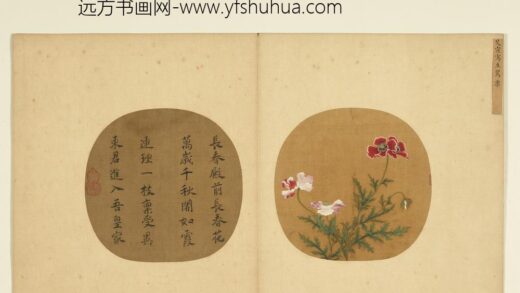 远方书画网-www.yfshuhua.com
長春殿前長春花
萬歲千秋如霞
連理一枝稟受異
東君進入吾皇家